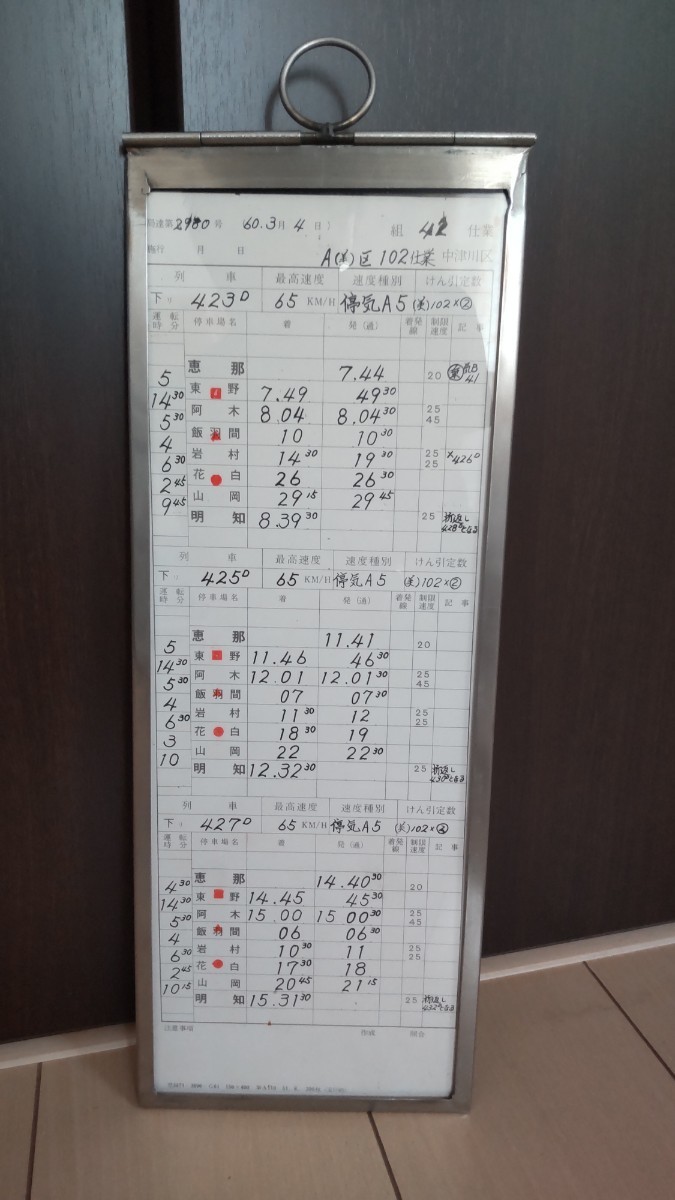 局達第2980号 (60.3月4日)
組 42 仕業
施行 月 日
A(美)区 102仕業 中津川区
列車 最高速度 速度種別 けん引定数
下り 423D 65 KM/H 停気A5 (美)102×②
運転時分 停車場名 着 発(通) 着発線 制限速度 記事
恵那 7.44 20
5
東野 7.49 49 30
14 30
阿木 8.04 8.04 30 25 45
5 30
飯羽間 10 10 30
4
岩村 14 30 19 30 25 25 ×426D
6 30
花白 26 26 30
2 45
山岡 29 15 29 45
9 45
明知 8.39 30 25 折返し
列車 最高速度 速度種別 けん引定数
下り 425D 65 KM/H 停気A5 (美)102×②
運転時分 停車場名 着 発(通) 着発線 制限速度 記事
恵那 11.41 20
5
東野 11.46 46 30
14 30
阿木 12.01 12.01 30 25 45
5 30
飯羽間 07 07 30
4
岩村 11 30 12 25 25
6 30
花白 18 30 19
3
山岡 22 22 30
10
明知 12.32 30 25 折返し
列車 最高速度 速度種別 けん引定数
下り 427D 65 KM/H 停気A5 (美)102×②
運転時分 停車場名 着 発(通) 着発線 制限速度 記事
恵那 14.40 30 20
4 30
東野 14.45 45 30
14 30
阿木 15 00 15 00 30 25 45
5 30
飯羽間 06 06 30
4
岩村 10 30 11 25 25
6 30
花白 17 30 18
2 45
山岡 20 45 21 15
10 15
明知 15.31 30 25 折返し
注意事項 作成 照合